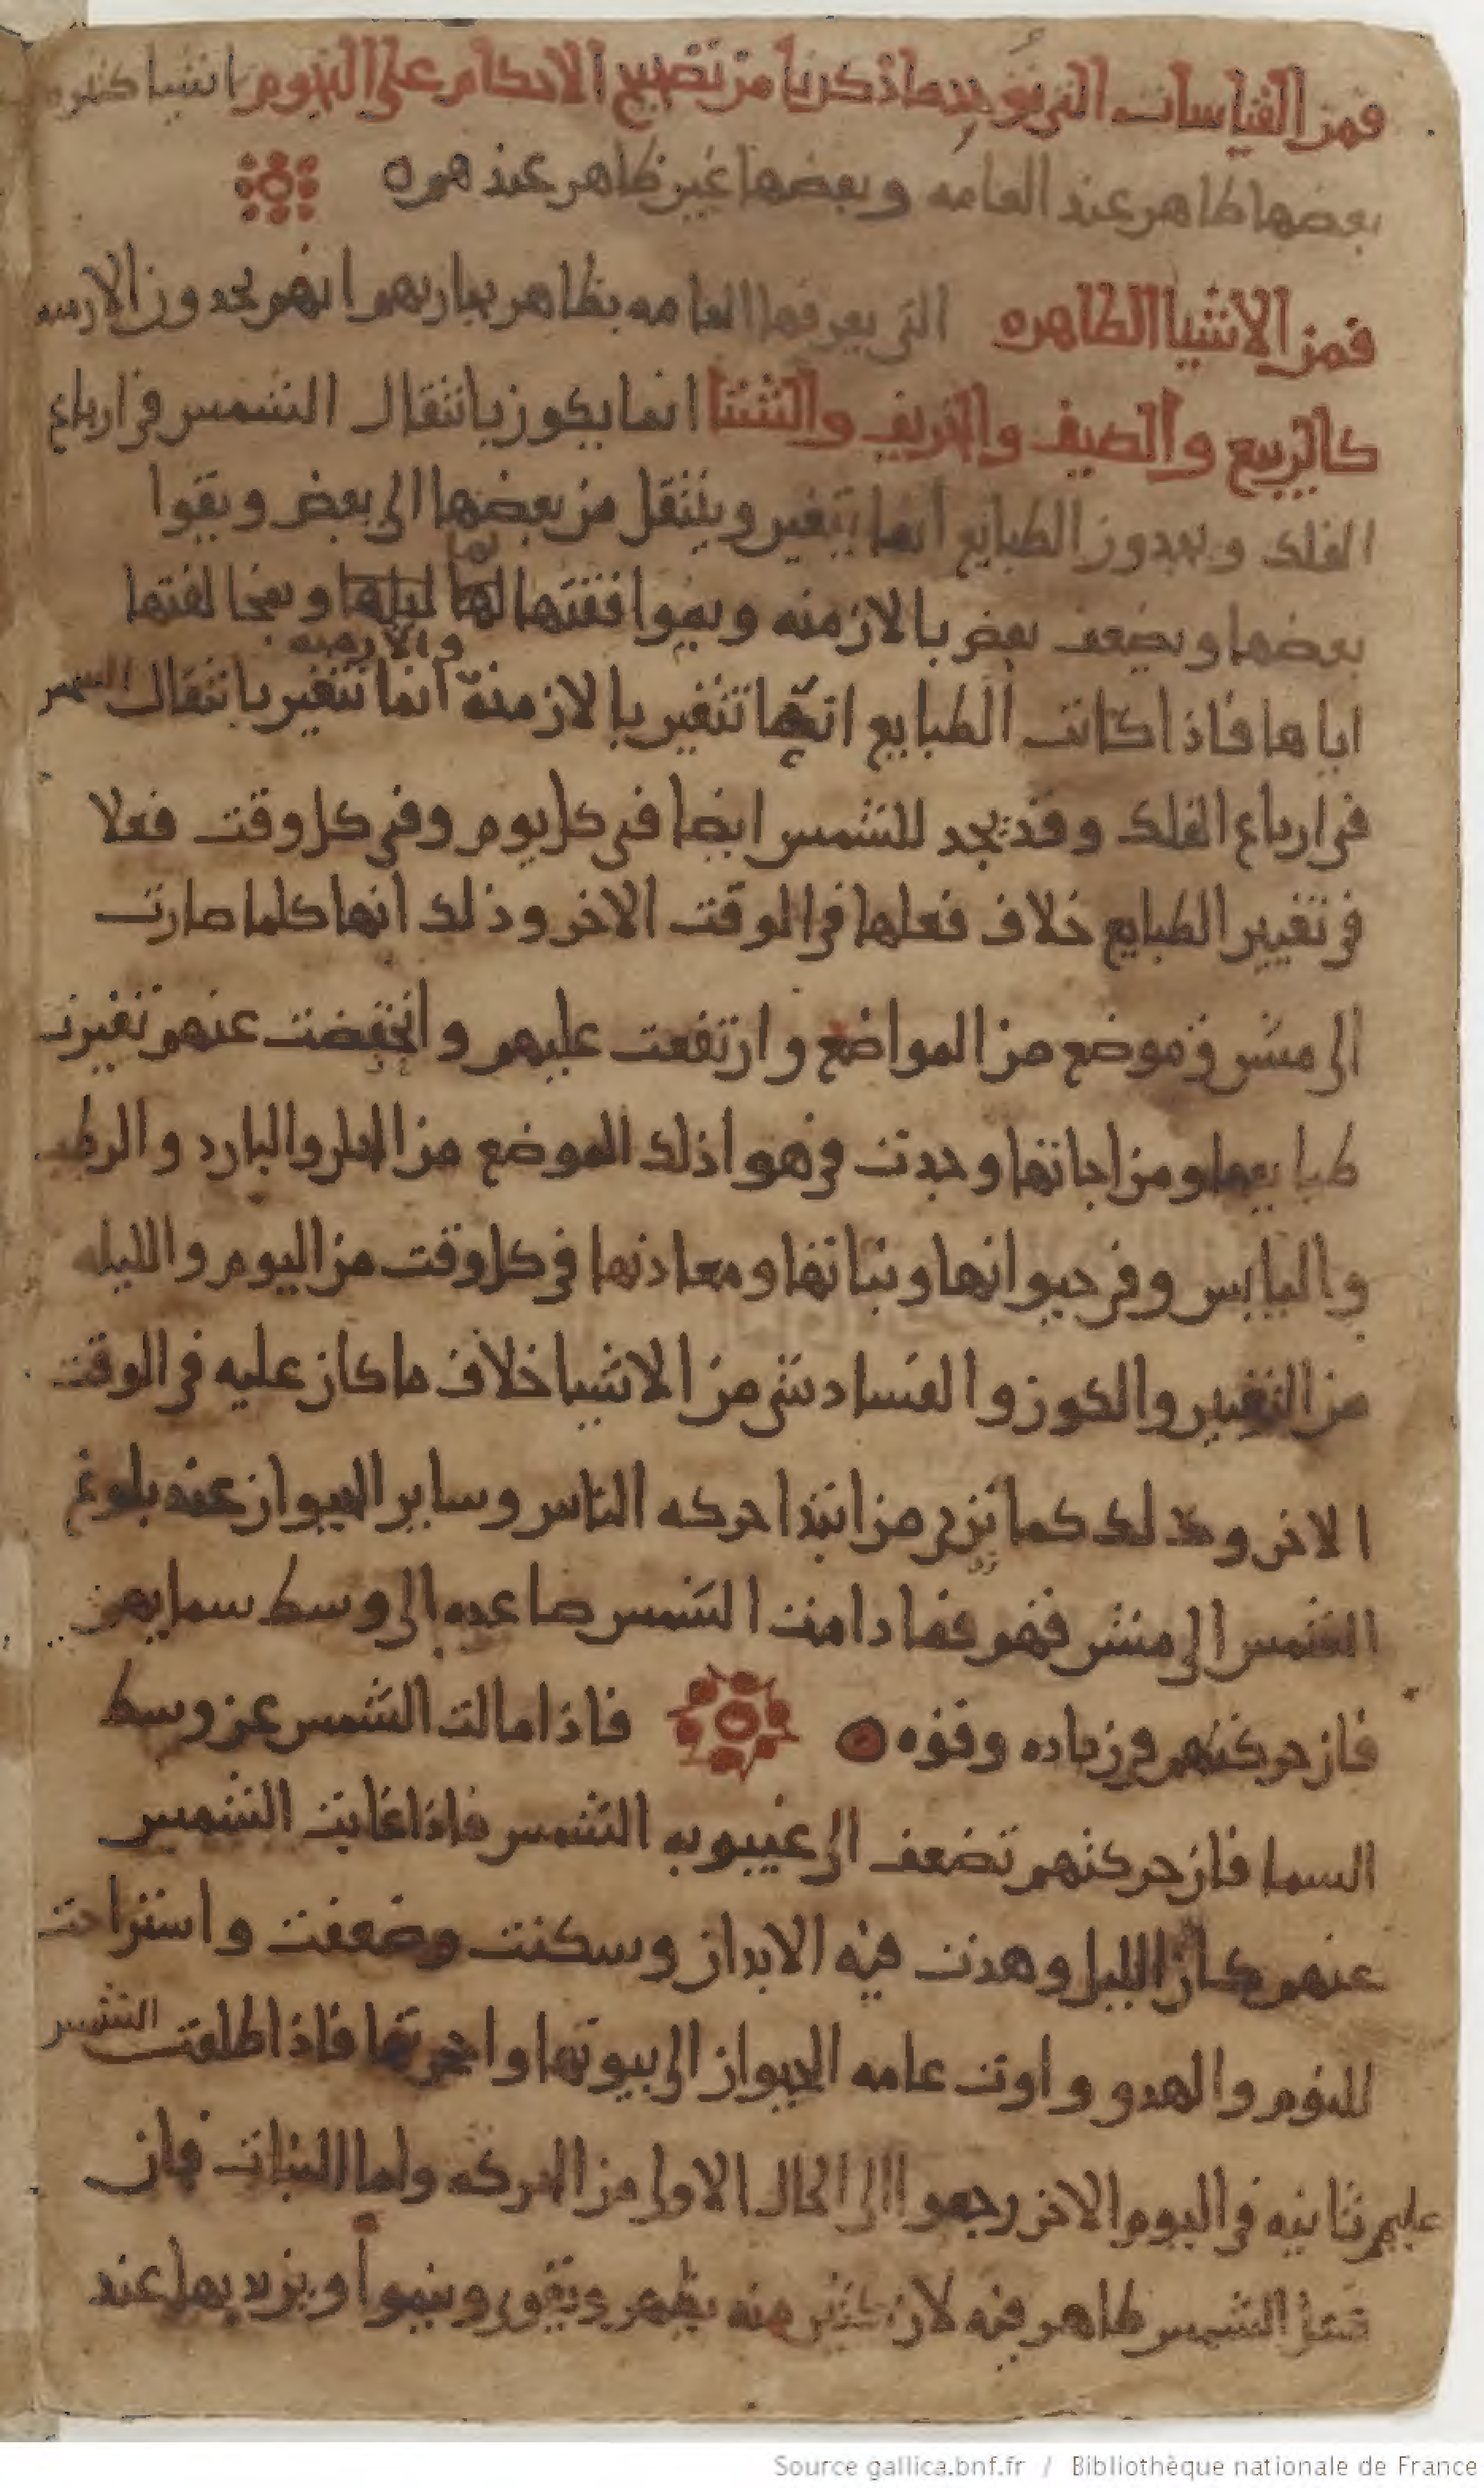 فمن القياسات التي يوجد بها ما ذكرنا من تصحيح الاحكام على النجوم اشيا كثيره
بعضها ظاهر عند العامه وبعضها غير ظاهر عندهم ه
فمن الاشيا الظاهره التي يعرفها العامه بظاهر تجاربهم انهم يجدون الازمنه
كالربيع والصيف والخريف والشتا انما يكون بانتقال الشمس في ارباع
الفلك ويجدون الطبايع انما تتغير وينتقل من بعضها الى بعض ويقوا
بعضها ويضعف بعض بالازمنه وبموافقتها لها وبمخالفتها
اياها فاذا كانت الطبايع انما تتغير بالازمنة والازمنه انما تتغير بانتقال الشمس
في ارباع الفلك وقد يجد للشمس ايضا في كل يوم وفي كل وقت فعلا
في تغيير الطبايع خلاف فعلها في الوقت الاخر وذلك انها كلما صارت
الى مشرق موضع من المواضع وارتفعت عليهم وانخفضت عنهم تغيرت
طبايعها ومزاجاتها وحدثت في هوا ذلك الموضع من الحار والبارد والرطب
واليابس وفي حيوانها ونباتها ومعادنها في كل وقت من اليوم والليله
من التغيير والكون والفساد شي من الاشيا خلاف ما كان عليه في الوقت
الاخر وكذلك كما نرى من ابتدا حركه الناس وساير الحيوان عند بلوغ
الشمس الى مشرقهم فما دامت الشمس صاعده الى وسط سمايهم
فان حركتهم في زياده وقوه ه فاذا مالت الشمس عن وسط
السما فان حركتهم تضعف الى غيبوبه الشمس فاذا غابت الشمس
عنهم كان الليل وهدت فيه الابدان وسكنت وضعفت واستراحت
للنوم والهدو واوت عامه الحيوان الى بيوتها واحجرتها فاذا طلعت الشمس
عليهم ثانيه في اليوم الاخر رجعوا الى الحال الاولى من الحركه واما النبات فان
فعل الشمس ظاهر فيه لان كثير منه يظهر ويقوى وينموا ويزيد بها عند
Source gallica.bnf.fr / Bibliothèque nationale de France